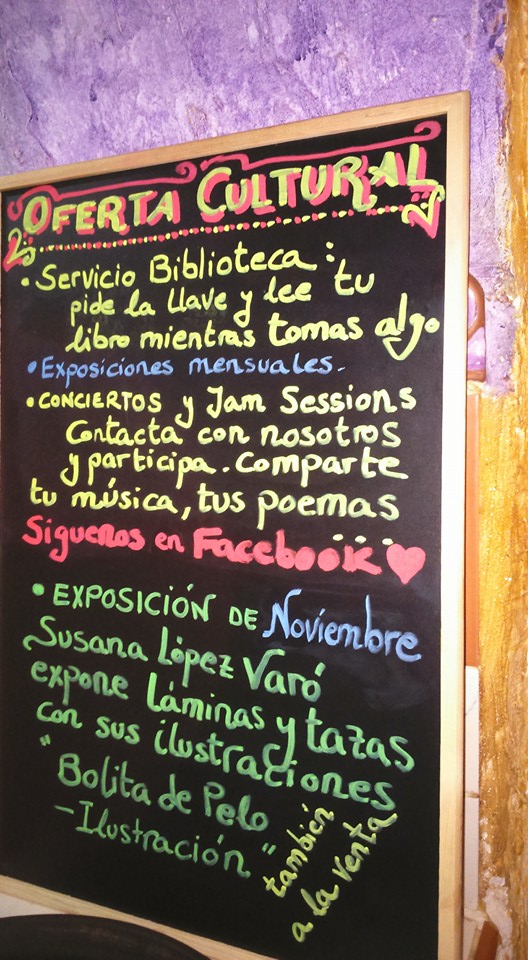 OFERTA CULTURAL
• Servicio Biblioteca:
pide la llave y lee tu
libro mientras tomas algo
• Exposiciones mensuales.
• CONCIERTOS y Jam Sessions
Contacta con nosotros
y participa. Comparte
tu música, tus poemas
...
Siguenos en Facebook ♥
• EXPOSICIÓN DE Noviembre
Susana López Varó
expone láminas y tazas
con sus ilustraciones
"Bolita de Pelo
- Ilustración"
también
a la venta